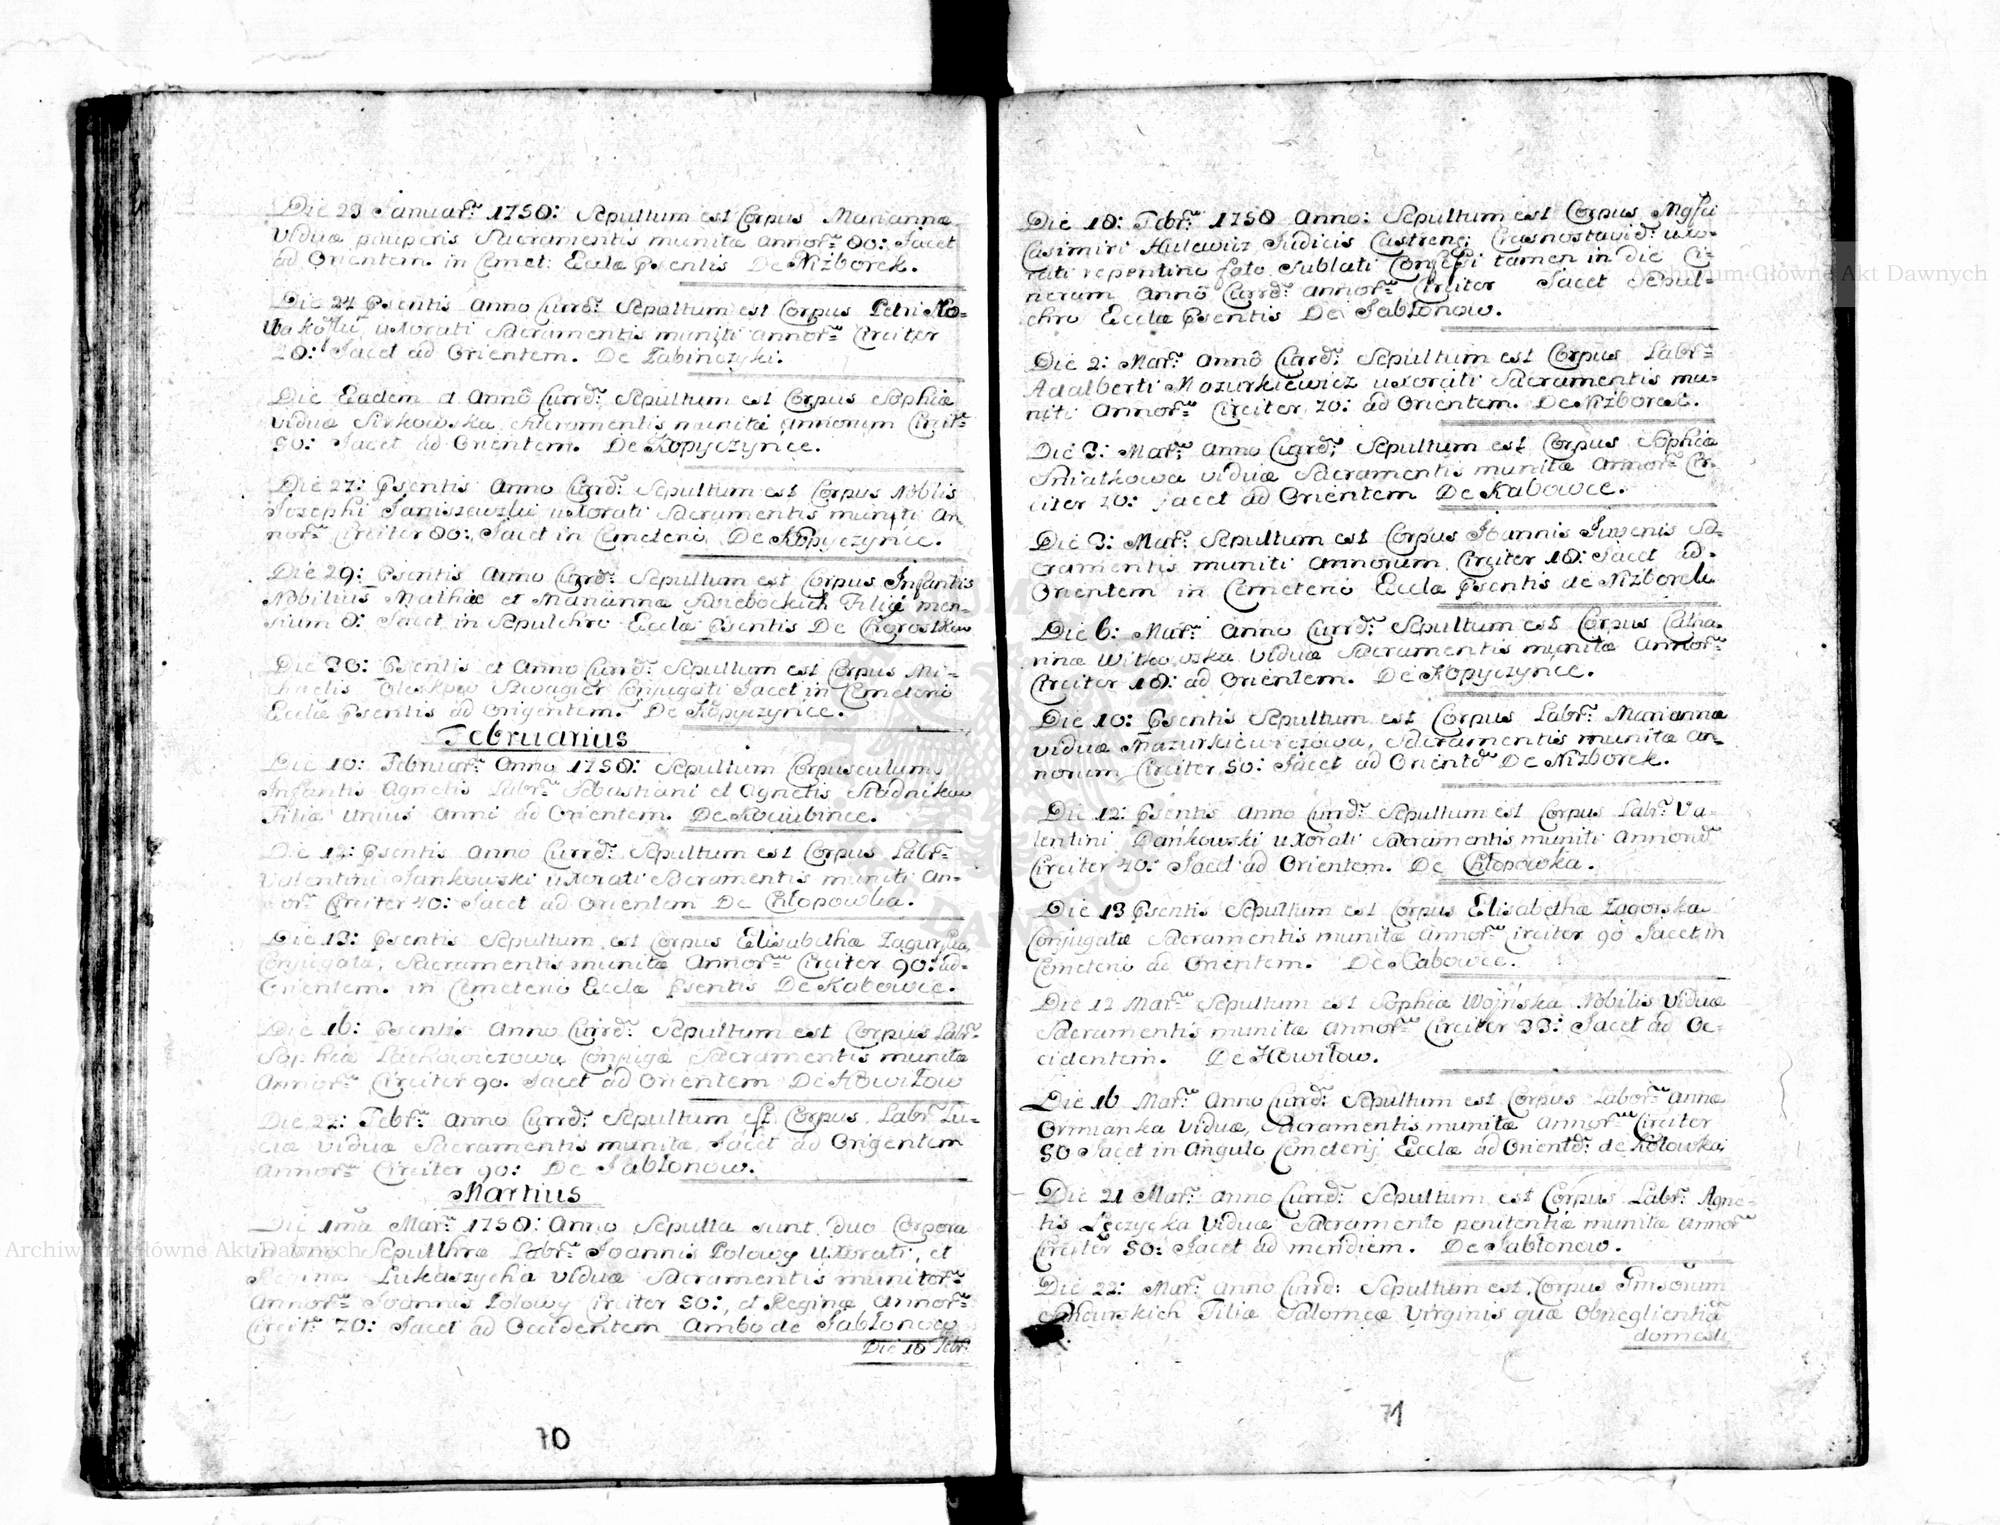 Die 23 Januar: 1758: Sepultum est Corpus Mariannæ
viduæ pauperis Sacramentis munitæ annor: 80: Jacet
ad Orientem. in Cemet: Ecclæ Psentis De Niżborek.
Die 24 Psentis Anno Currd: Sepultum est Corpus Petri No=
uxorati Sacramentis muniti annor: Circiter
20: Jacet ad Orientem. De
Die Eadem et Annô Currd: Sepultum est Corpus Sophiæ
viduæ Sirkowska, Sacramentis munitæ annorum Circit:
50: Jacet ad Orientem. De Kopyczynce.
Die 27: Psentis Anno Currd: Sepultum est Corpus Nobilis
Josephi Janiszewski uxorati Sacramentis muniti An
nor: Circiter 80: Jacet in Cemeterio, De Kopyczynce.
Die 29: Psentis Anno Currd: Sepultum est Corpus Infantis
Nobilius Mathiæ et Mariannæ Filiæ men=
sium 8: Jacet in Sepulchro Eccłæ Psentis De Chorostkow
Die 30: Psentis et Anno Currd: Sepultum est Corpus Mi=
chaelis Oleskow Szwagier Conjugati Jacet in Cemeterio
Eccłæ Psentis ad Origentem. De Kopyczynce.
Februarius
Die 10: Februar: Anno 1758: Sepultum Corpusculum
Infantis Agnetis Labr: Sebastiani et Agnetis
Filiæ unius Anni ad Orientem. De Kociubince.
Die 12: Psentis Anno Currd: Sepultum est Corpus Labr:
Valentini Jankowski uxorati Sacramentis muniti An=
nor: Circiter 40: Jacet ad Orientem De Chłopowka.
Die 13: Psentis Sepultum est Corpus Elisabethæ Zagurska
Conjugatæ, Sacramentis munitæ Annor: Circiter 90: ad=
Orientem. in Cemeterio Eccłæ Psentis De Kabowce.
Die 16: Psentis Anno Currd: Sepultum est Corpus Labr:
Sophiæ Lachowiczowa Conjugæ Sacramentis munitæ
Annor: Circiter 90. Jacet ad Orientem De Howiłow
Die 22: Febr: Anno Currd: Sepultum est Corpus Labr: Lu=
ciæ Viduæ Sacramentis munitæ, Jacet ad Origentem
Annor: Circiter 90: De Jabłonow.
Martius
Die 1ma Mar: 1758: Anno Sepulta sunt duo Corpora
in uno Sepulthro Labr: Joannis Polowy uxorati, et
Reginæ Lukaszycha viduæ Sacramentis munitor:
Annor: Joannis Polowy Circiter 50:, et Reginæ Annor:
Circit: 70: Jacet ad Occidentem Ambo de Jabłonow
Die 18 Febr:
70
Die 18: Febr: 1758 Anno: Sepultum est Corpus Mgfci
Casimiri Hulewicz Judicis Castren: Crasnostavid: uxo-
rati repentino fato Sublati Confessi tamen in die Ci=
nerum Annô Currd: annor: Circiter Jacet Sepul=
chro Eccłæ Psentis De Jabłonow.
Die 2: Mar: Annô Currd: Sepultum est Corpus Labr:
Adalberti Mazurkiewicz uxorati Sacramentis mu=
niti Annor: Circiter 70: ad Orientem. De Niżborek.
Die 3: Mar: Anno Currd: Sepultum est Corpus Sophiæ
Sniatkowa viduæ Sacramentis munitæ Annor: Cir
citer 70: Jacet ad Orientem De Kabowce.
Die 3: Mar: Sepultum est Corpus Joannis Juvenis Sa=
cramentis muniti Annorum Circiter 18: Jacet ad=
Orientem in Cemeterio Eccłæ Psentis de Niżborek
Die 6: Mar: Anno Currd: Sepultum est Corpus Catha=
rinæ Witkowska Viduæ Sacramentis munitæ Annor:
Circiter 18: ad Orientem. De Kopyczynce.
Die 10: Psentis Sepultum est Corpus Labr: Mariannæ
viduæ Mazurkiewiczowa, Sacramentis munitæ an=
norum Circiter 50: Jacet ad Orientd: De Niżborek.
Die 12: Psentis Anno Currd: Sepultum est Corpus Labr: Va=
lentini Dańkowski uxorati Sacramentis muniti Annord:
Circiter 40: Jacet ad Orientem. De Chłopowka.
Die 13 Psentis Sepultum est Corpus Elisabethæ Zagorska
Conjugatæ Sacramentis munitæ Annor: Circiter 90 Jacet in
Cemeterio ad Orientem. De Kabowce.
Die 12 Mar: Sepultum est Sophiæ Woyńska Nobilis Viduæ
Sacramentis munitæ Annor: Circiter 33: Jacet ad Oc=
cidentem. De Howiłow.
Die 16 Mar: Anno Currd: Sepultum est Corpus Labor: Annæ
Ormianka Viduæ, Sacramentis munitæ Annor: Circiter
50 Jacet in Angulo Cemeterij Eccłæ ad Orientd: de Kołowka
Die 21 Mar: Anno Currd: Sepultum est Corpus Labr: Agne=
tis Łęczycka Viduæ Sacramento penitentiæ munitæ Annor:
Circiter 50: Jacet ad meridiem. De Jabłonow.
Die 22: Mar: Anno Currd: Sepultum est Corpus
Filiæ Salomeæ Virginis quæ Obneglientiâ
domesti
71
Archiwum Główne Akt Dawnych
Archiwum Główne Akt Dawnych